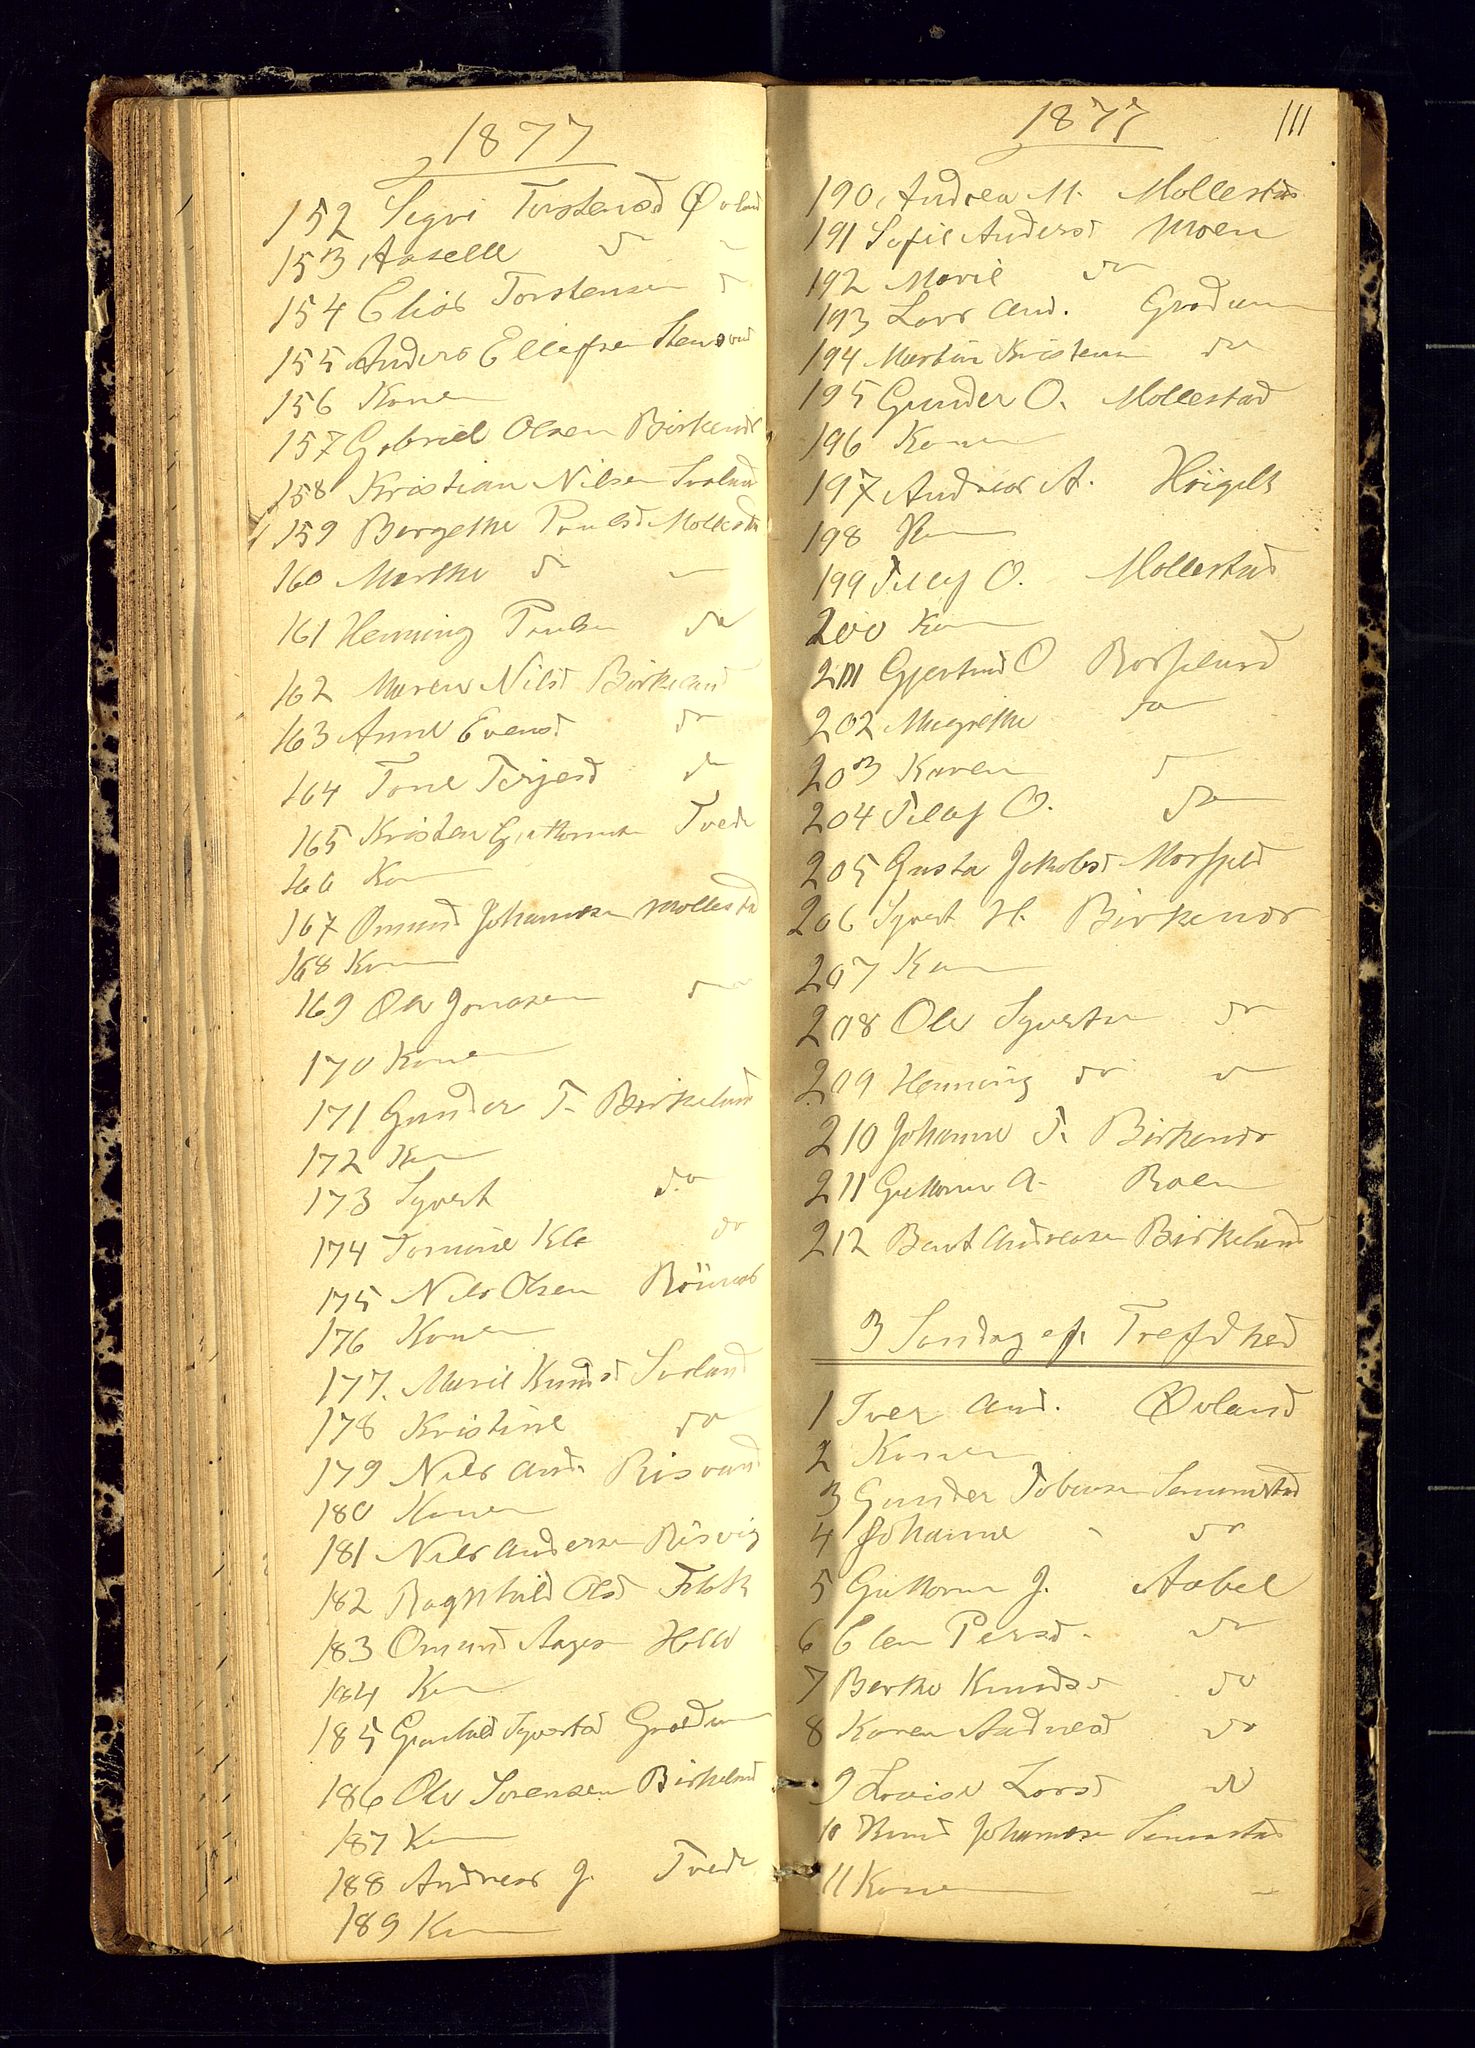 1877
152 Segri Torstensd Øvland
153 Aaselle do -
154 Elias Torstensen do
155 Anders Ellefsen Stensvand
156 Konen
157 Gabriel Olsen Birkenes
158 Kristian Nilsen Svaland
159 Bergethe Paulsd Mollestad
160 Marthe do -
161 Henning Paulsen do
162 Maren Nilsd Birkeland
163 Anne Evensd do
164 Tone Terjesd do
165 Kristen Guttormsen Tvede
166 Ko
167 Omund Johannesen Mollestad
168 Kon
169 Ole Jonasen do
170 Konen
171 Gunder T. Birkeland
172 Kon
173 Syvert do
174 Tomine Kle do
175 Nils Olsen Röinaas
176 Konen
177. Marie Knudsd Svaland
178 Kristine do
179 Nils And. Risvand
180 Konen
181 Nils Andersen Risvig
182 Ragnhild Olsd
183 Omund Aagesen
184 Kon
185 Gunhild Syvertsd Grødum
186 Ole Sørensen Birkeland
187 Kon
188 Andreas J. Tvede
189 Kon
1877 111
190, Andrea M. Mollestad
191 Sofie Andersd Moen
192 Marie do
193 Lars And. Grødum
194 Martin Kristensen do
195 Gunder O. Mollestad
196 Konen
197 Andreas A. Höigilt
198 Kon
199 Tellef O. Mollestad
200 Kon
201 Gjertrud O
202 Magrethe do
203 Karen do
204 Tellef O. do
205 Gusta Jakobsd
206 Syvert H. Birkenes
207 Kon
208 Ole Syvertsen do
209 Henning do do
210 Johanne T. Birkenes
211 Guttorm A. Roen
212 Bent Andreasen Birkeland
3 Søndag ef. Trefdhed
1 Iver And. Øvland
2 Konen
3 Gunder Tobiasen Senumstad
4 Johanne - do
5 Guttorm J. Aabel
6 Elen Persd. do
7 Berthe Knudsd do
8 Karen Aadnesd do
9 Lovise Larsd do
10 Knud Johannesen Senumstad
11 Konen -